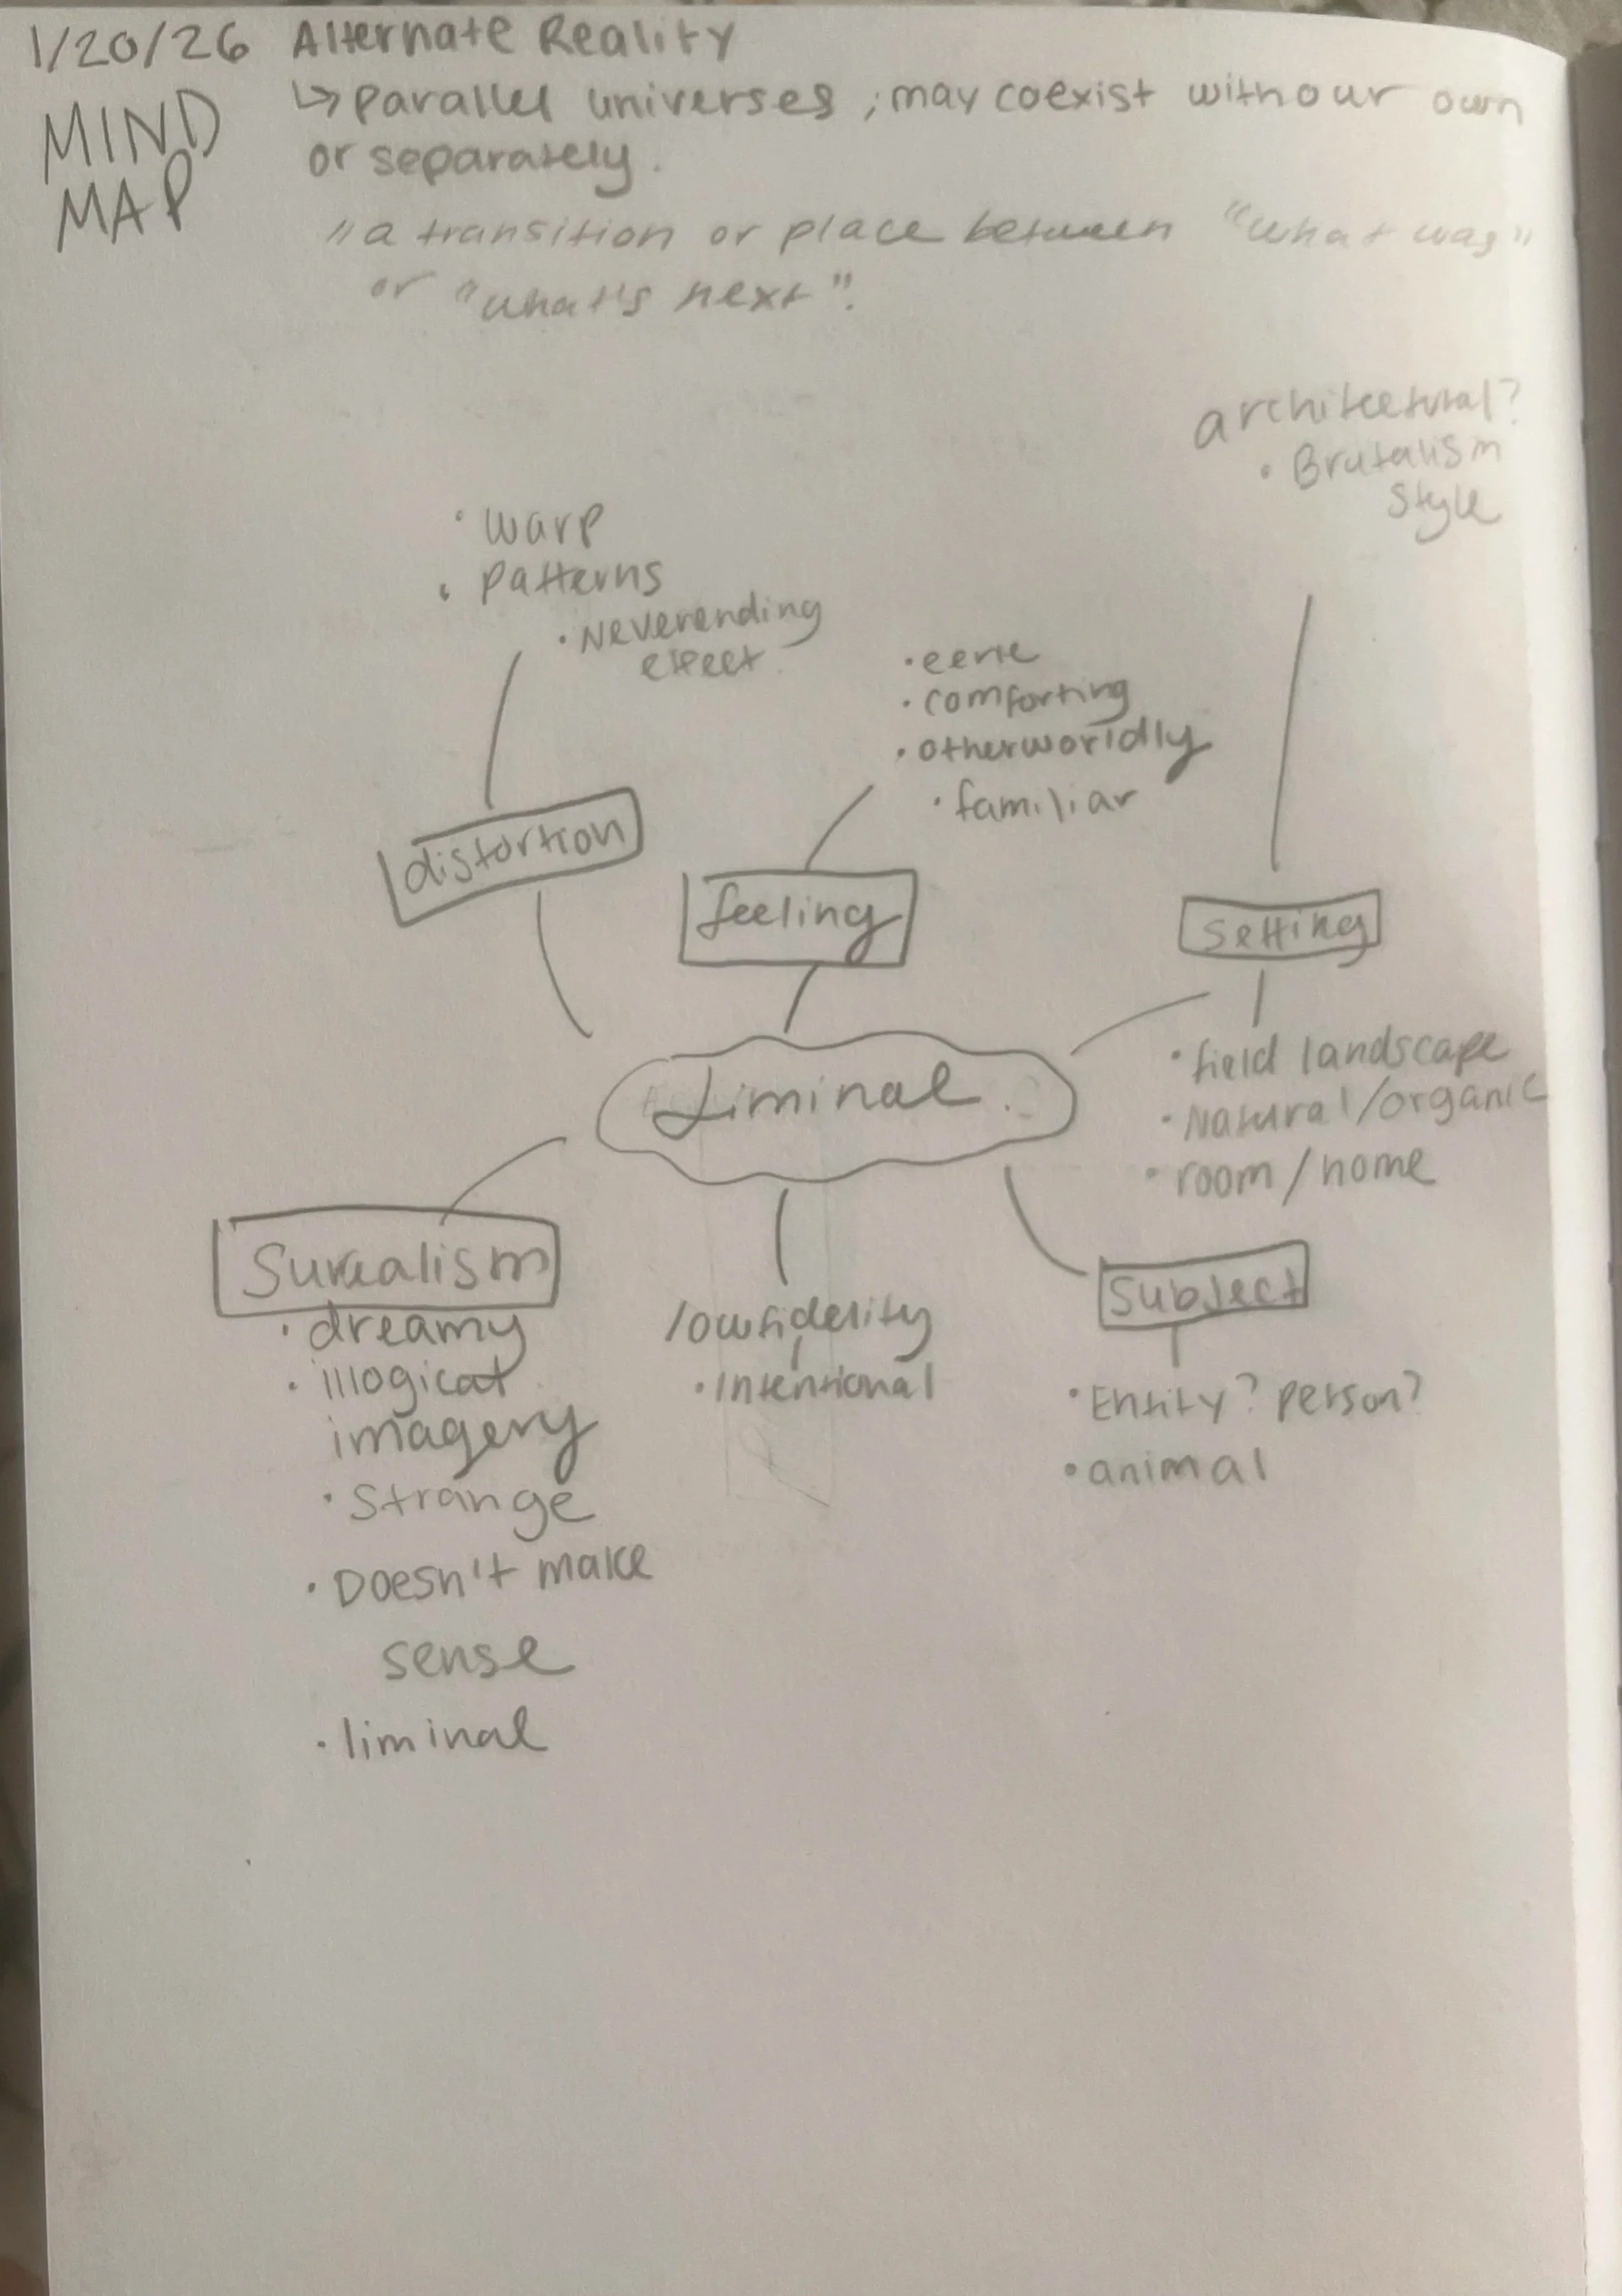 1/20/26 Alternate Reality
MIND MAP
↳ parallel universes ; may coexist with our own
or separately.
"a transition or place between "what was"
or "what's next".
architectural?
• Brutalism
style
• warp
• patterns
• Neverending
effect
• eerie
• comforting
• otherworldly
• familiar
distortion
feeling
setting
Liminal
• field landscape
• Natural/organic
• room/home
Surealism
• dreamy
• illogical
imagery
• Strange
• Doesn't make
sense
• liminal
lowfidelity
• Intentional
Subject
• Entity? person?
• animal